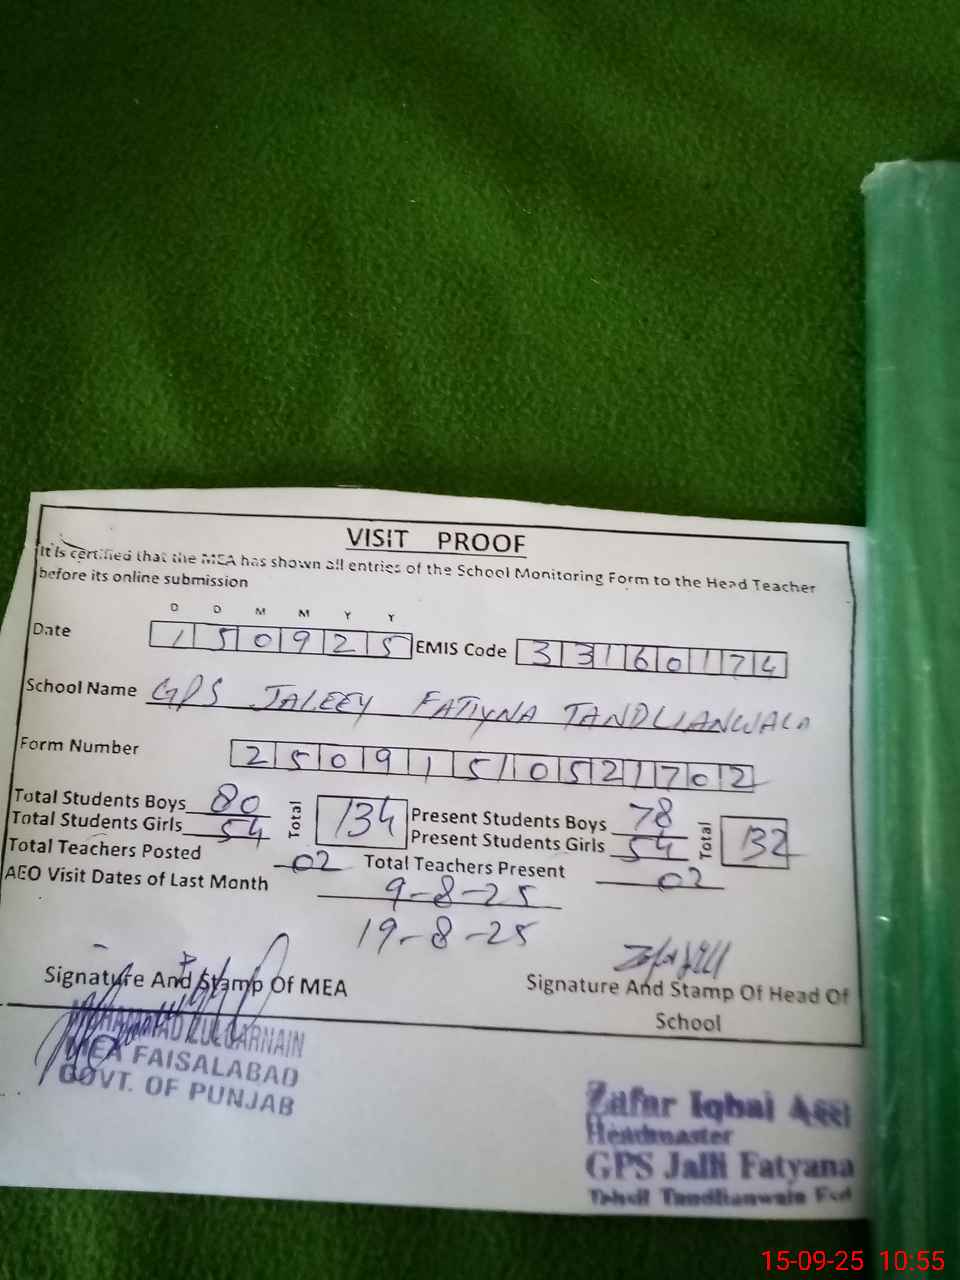 VISIT PROOF
It is certified that the MEA has shown all entries of the School Monitoring Form to the Head Teacher
before its online submission
D D M M Y Y
Date 150925 EMIS Code 33160174
School Name GPS JALEEY FATIYNA TANDLIANWALA
Form Number 25091510521702
Total Students Boys 80 Total 134 Present Students Boys 78 Total 132
Total Students Girls 54 Present Students Girls 54
Total Teachers Posted 02 Total Teachers Present 02
AEO Visit Dates of Last Month 9-8-25
19-8-25
Signature And Stamp Of MEA
Signature And Stamp Of Head Of
School
MUHAMMAD ZULQARNAIN
MEA FAISALABAD
GOVT. OF PUNJAB
Zafar Iqbal
Headmaster
GPS Jalli Fatyana
Tehsil Tandlianwala Fsd
15-09-25 10:55